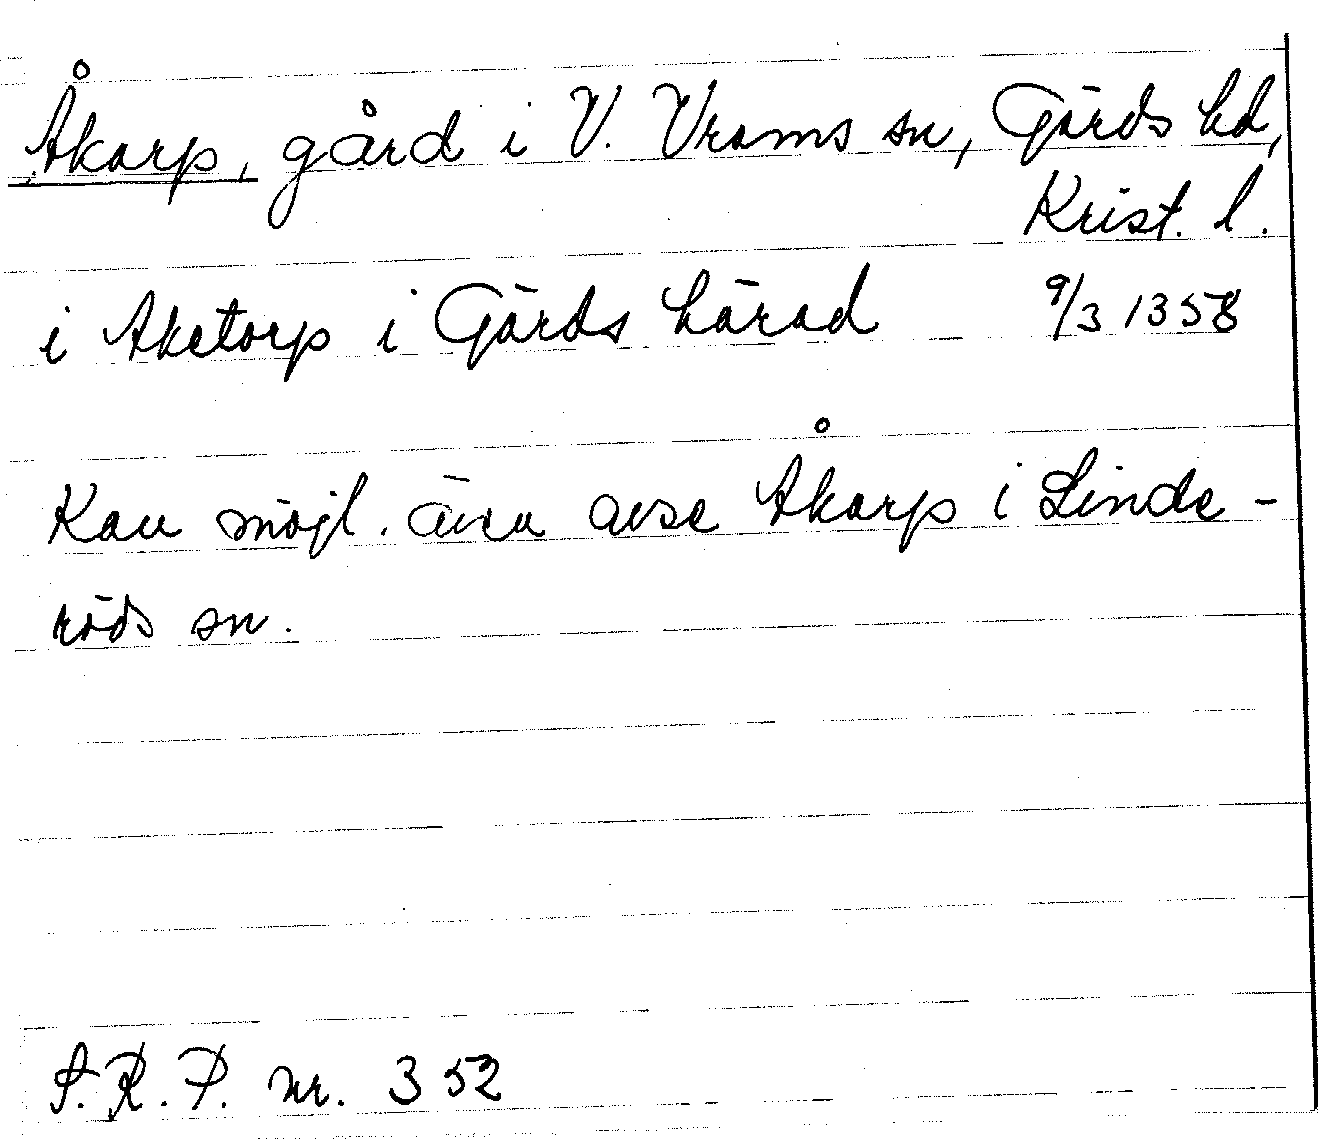 Åkarp, gård i V. Vrams sn, Gärds hd,
Krist. l.
i Aketorp i Gärds härad 9/3 1358
Kan möjl. även avse Åkarp i Linde-
röds sn.
S.R.P. nr. 352